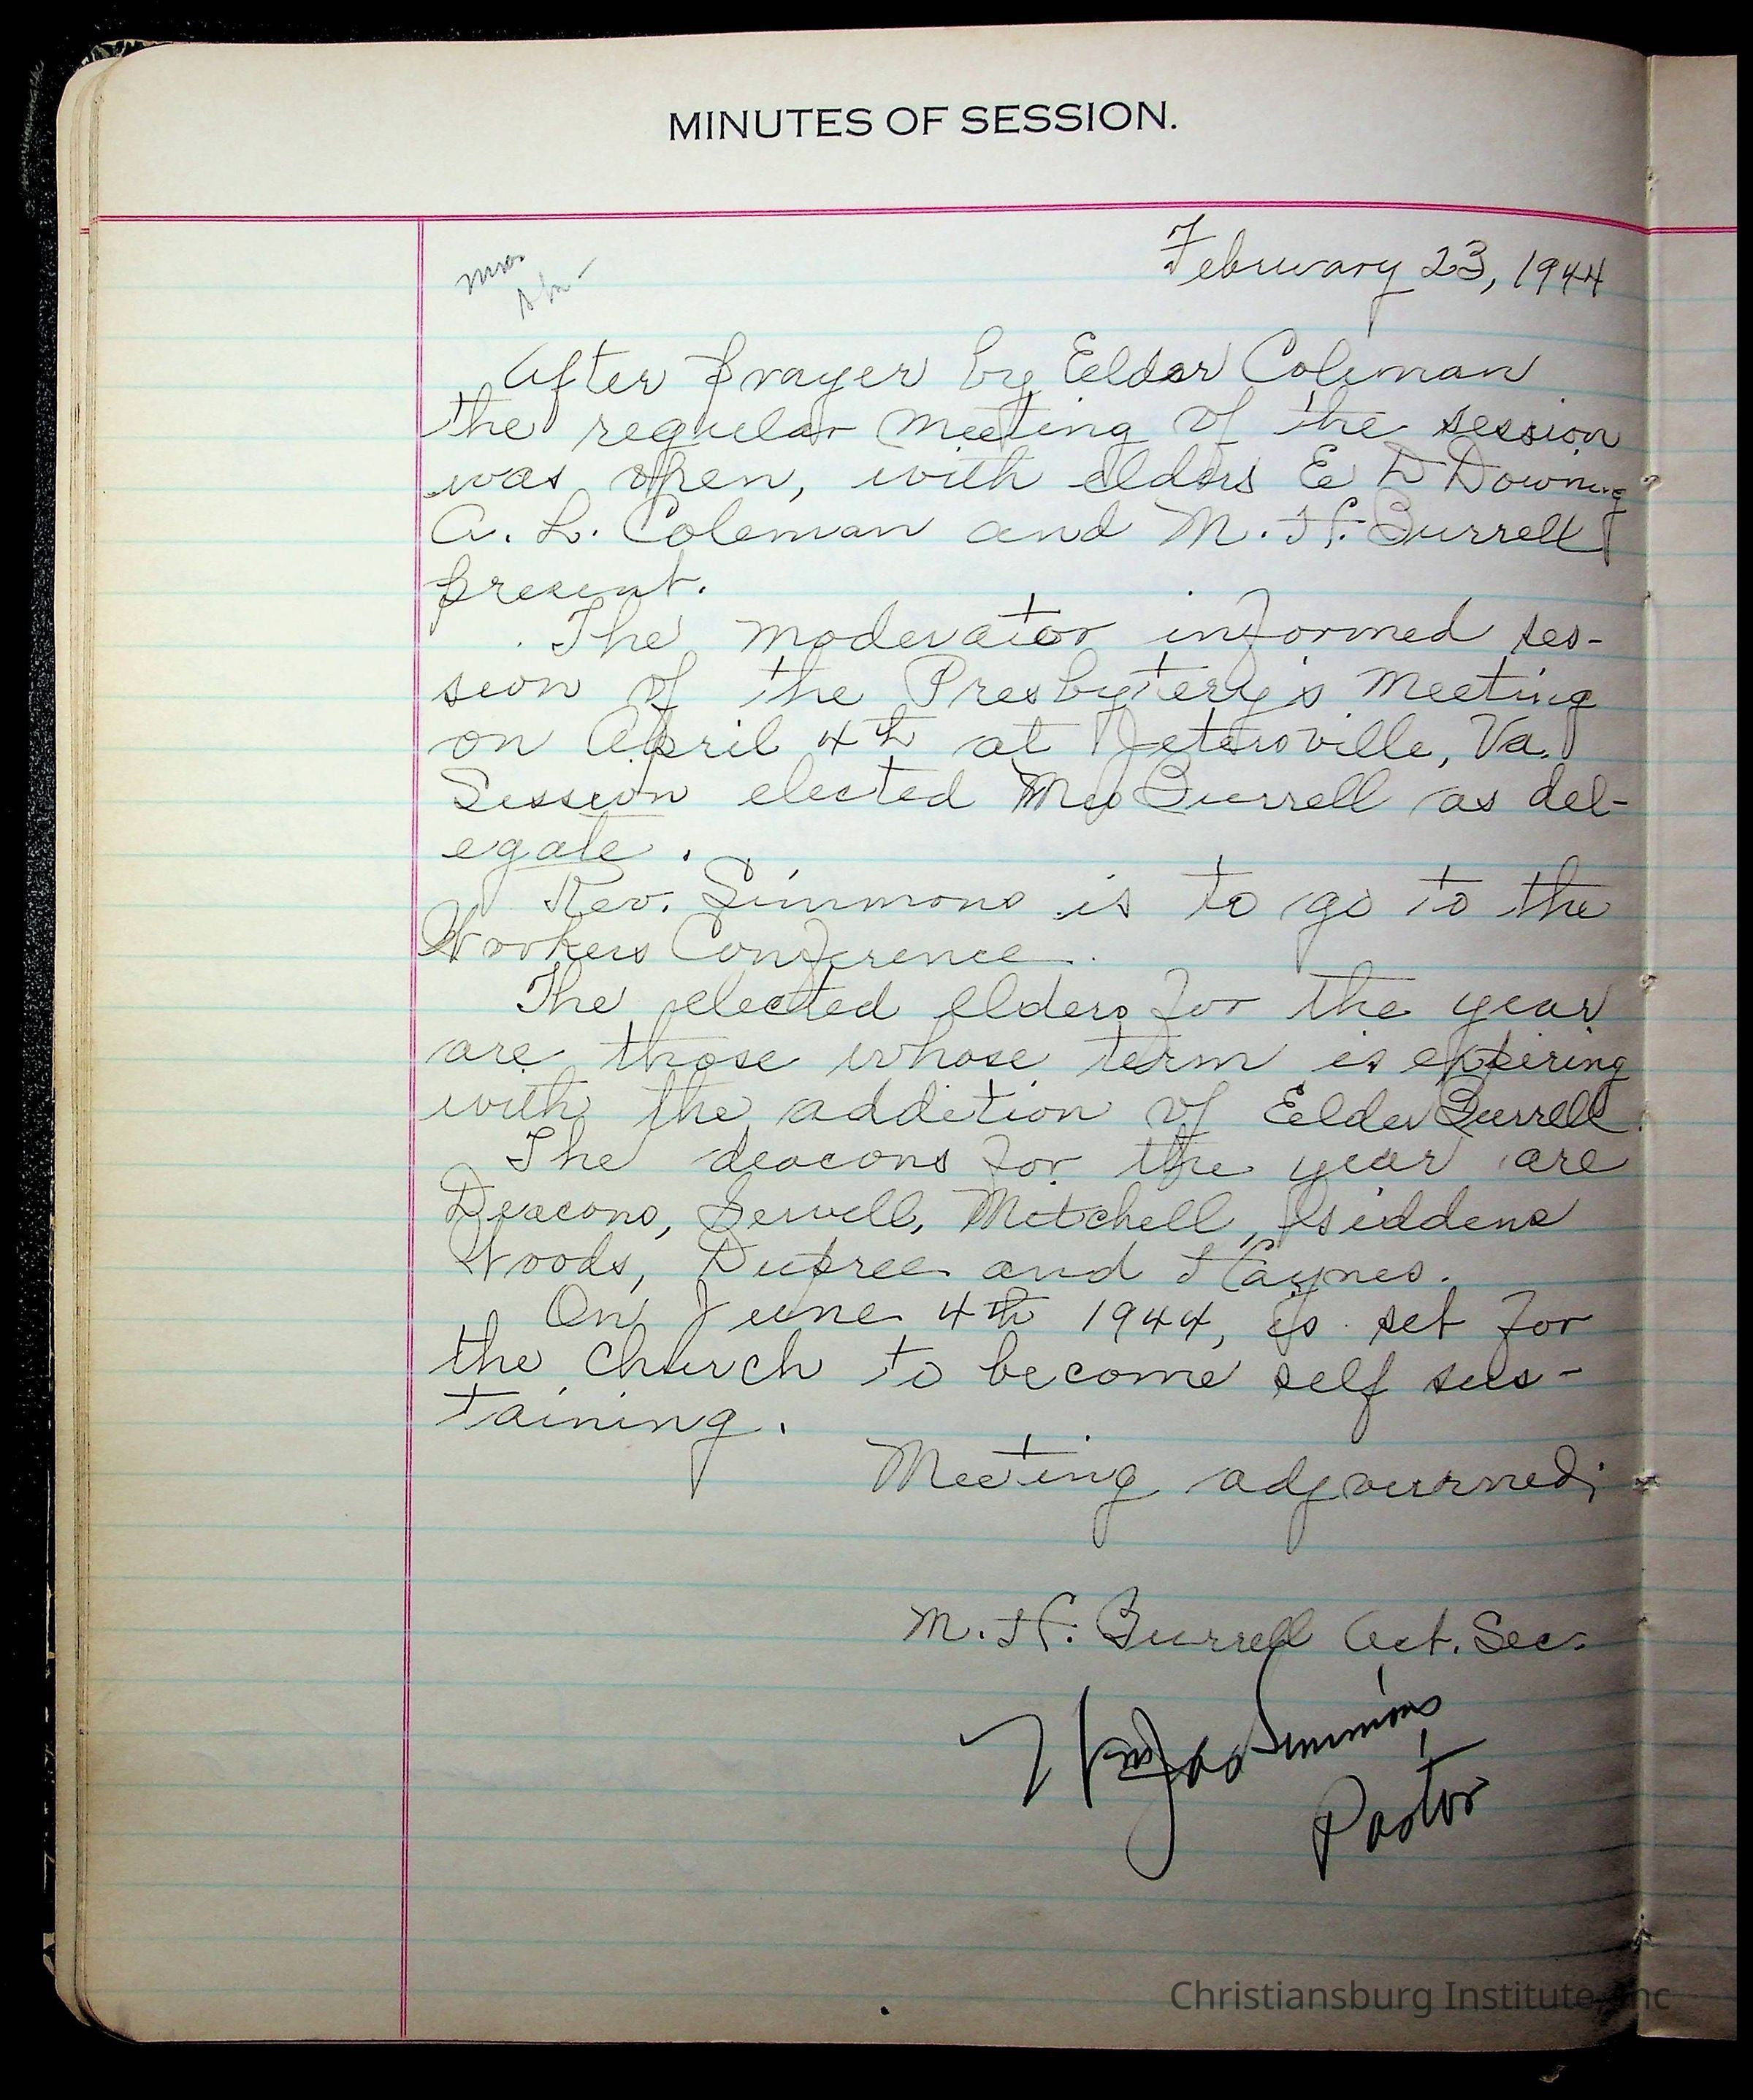 MINUTES OF SESSION.
February 23, 1944
After prayer by Eelder Coleman
the regular meeting of the session
was open, with elders E D Downing
A. L. Coleman and M. H. Burrell
present.
The moderator informed ses-
sion of the Presbytery's meeting
on April 4th at Jetersville, Va.
Session elected Burrell as del-
egate.
Rev. Simmons is to go to the
Workers Conference.
The elected elders for the year
are those whose term is expiring
with the addition of Eelder Burrell.
The deacons for the year are
Deacons, Sewell, Mitchell, Giddens
Woods, Dupree and Haynes.
On June 4th 1944, is set for
the church to become self sus-
taining.
Meeting adjourned;
M. H. Burrell Act. Sec.
Simmons
Pastor
Christiansburg Institute, Inc